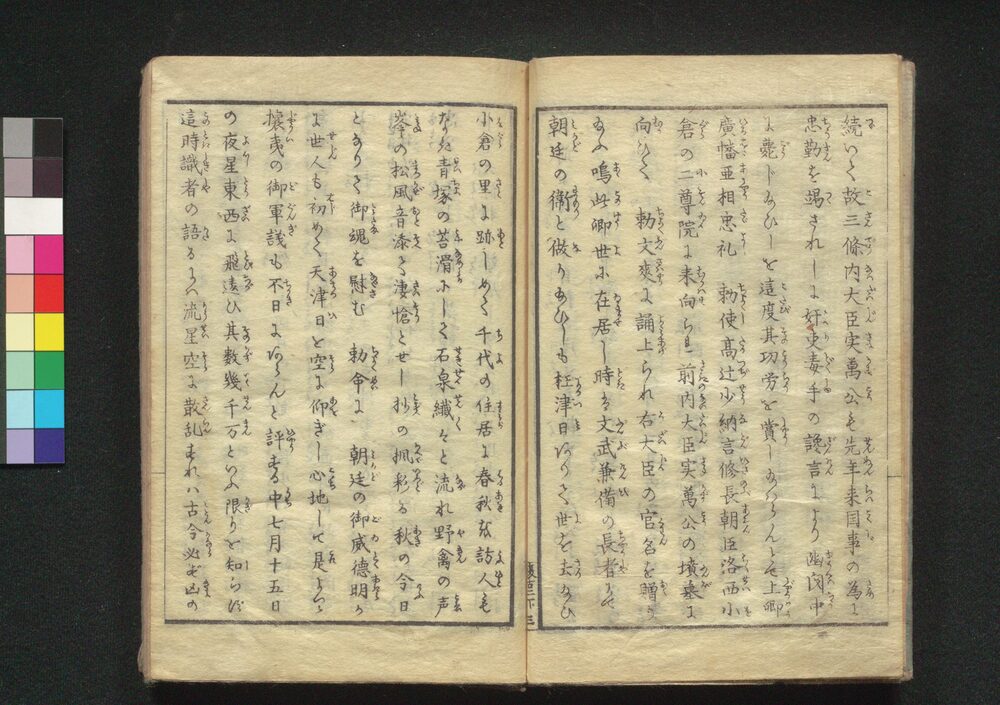 続いて故三條内大臣実萬公も先年来国事の為に
忠勤を竭されしに奸吏毒手の讒言により幽閉中
に薨じ給ひしを這度其功労を賞し給はらんとて上卿
廣幡亜相忠礼 勅使髙辻少納言修長朝臣洛西小
倉の二尊院に来向られ前内大臣実萬公の墳墓に
向ひて 勅文爽に誦上られ右大臣の官名を贈り
給ふ嗚呼此卿世に在居し時は文武兼備の長者にて
朝廷の衛と做り給ひしも枉津日ありて世を去給ひ
小倉の里に跡しめて千代の住居に春秋を訪人も
なき青塚の苔滑にして石泉纎々と流れ野禽の声
峯の松風音添て凄愴とせし抄の楓彩る秋の今日
となりて御魂を慰む 勅命に 朝廷の御威徳明か
に世人も初めて天津日を空に仰ぎし心地しぬ是より
攘夷の御軍議も不日にあらんと評する中七月十五日
の夜星東西に飛違ひ其数幾千万といふ限りを知らず
這時識者の語るは流星空に散乱すれハ古今必ず凶の
復古三ノ下 三